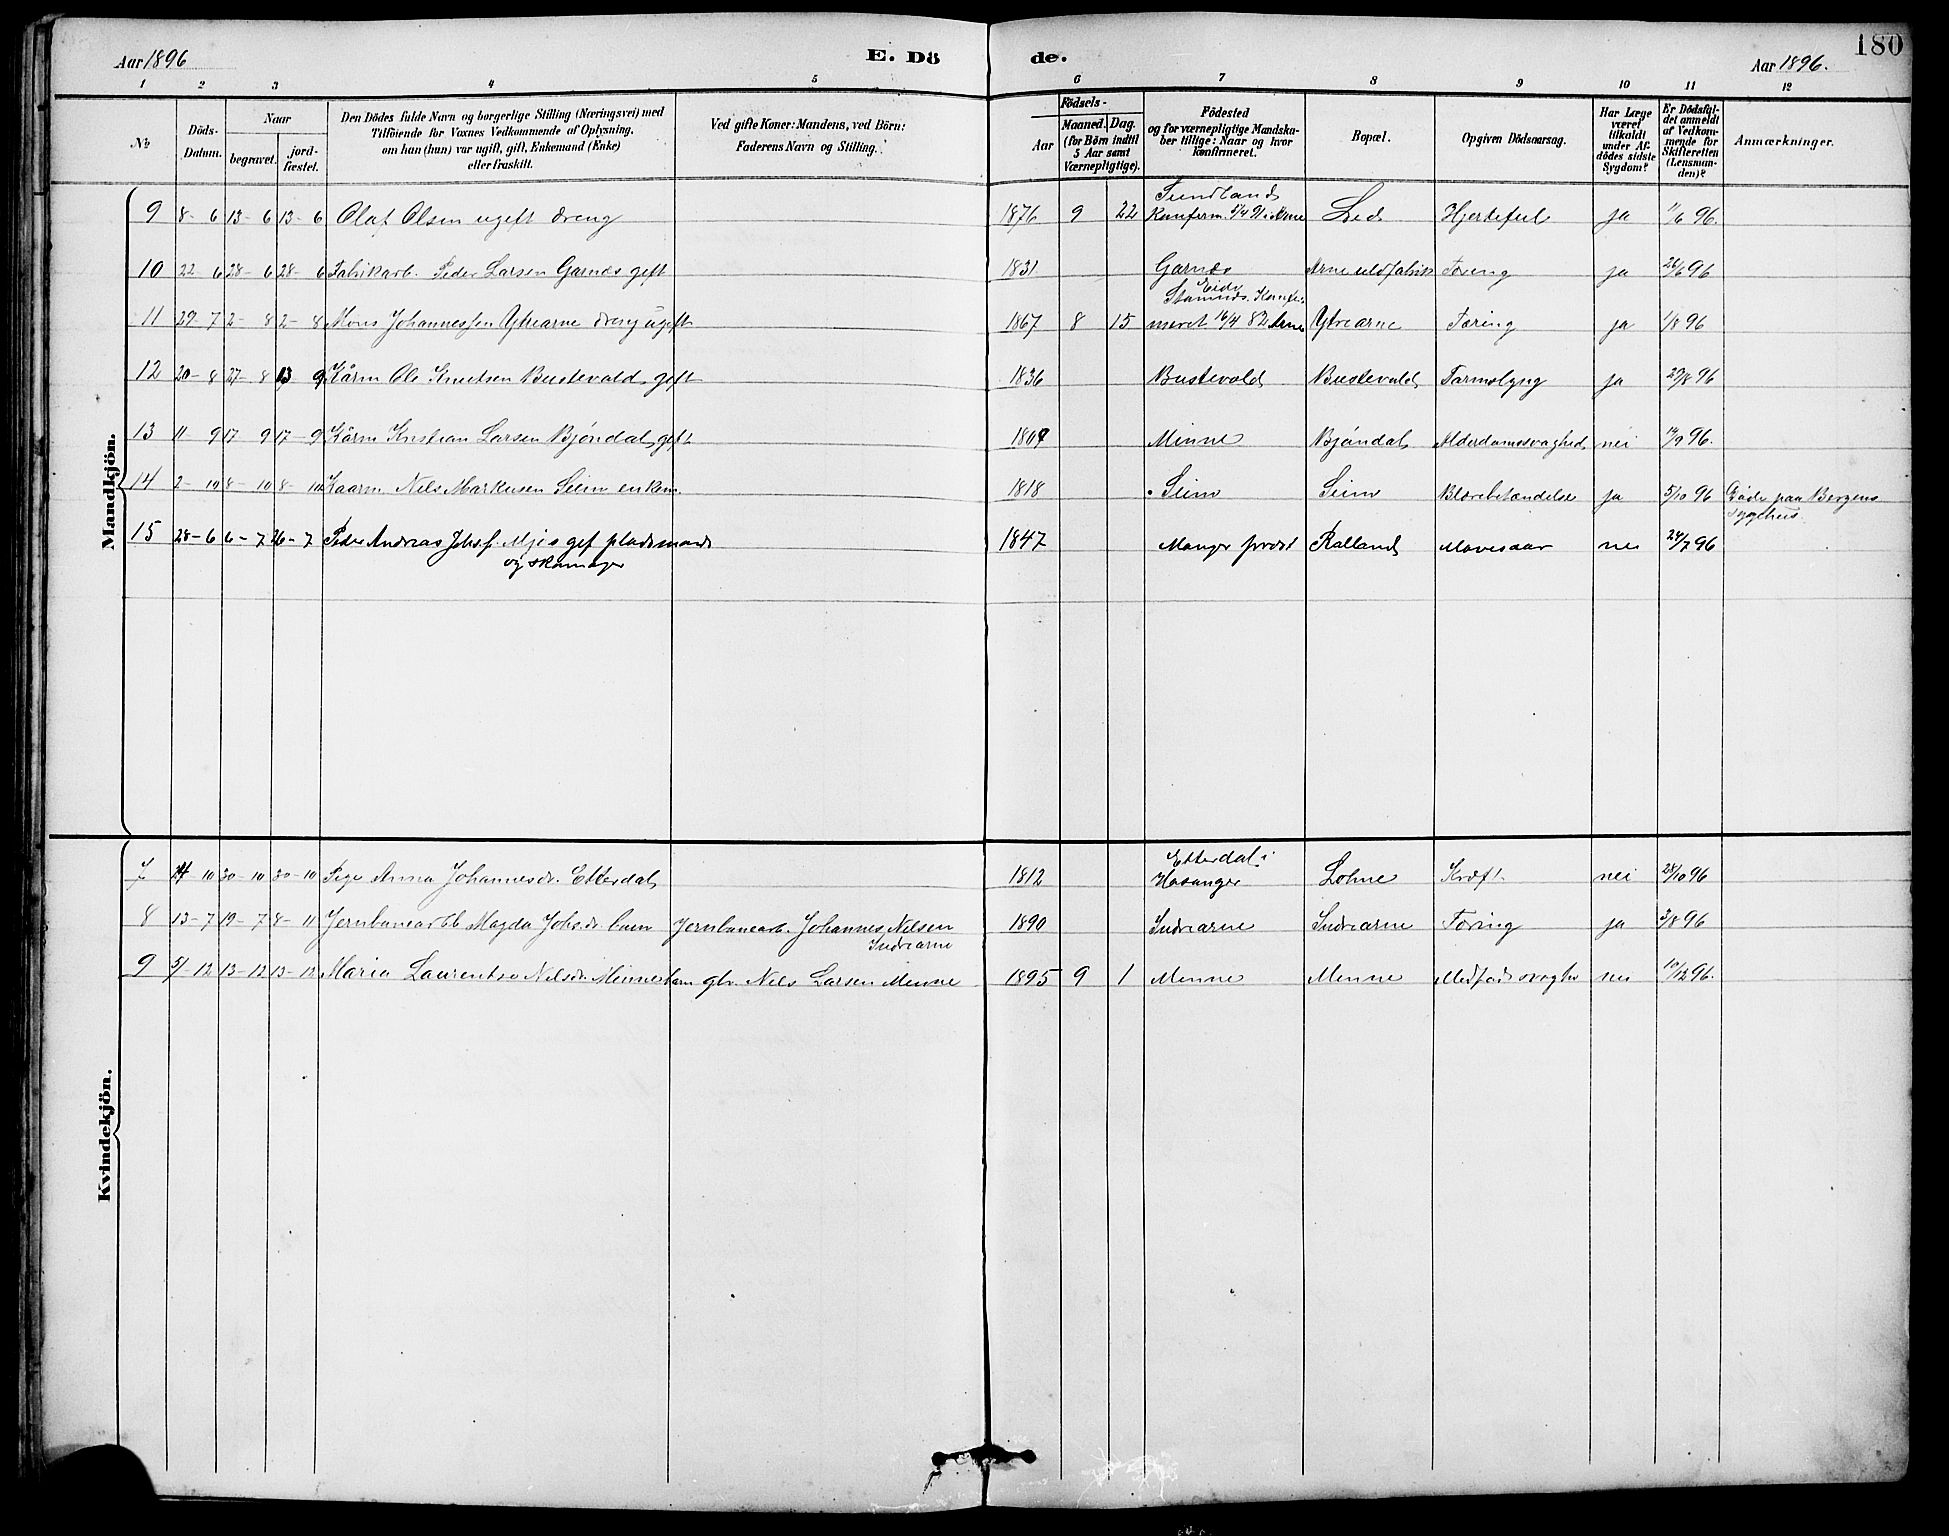 Aar 1896
E. Dö
de.
Aar 1896.
180
1 2 3 4 5 6 7 8 9 10 11 12
No
Döds-Datum.
Naar
begravet.
jord-fæstet.
Den Dödes fulde Navn og borgerlige Stilling (Næringsvei) med
Tilföiende for Voxnes Vedkommende af Oplysning,
om han (hun) var ugift, gift, Enkemand (Enke)
eller fraskilt.
Ved gifte Koner: Mandens, ved Börn:
Faderens Navn og Stilling.
Födsels-
Aar
Maaned. Dag.
(for Börn indtil
5 Aar samt
Værnepligtige).
Födested
og for værnepligtige Mandska-
ber tillige: Naar og hvor
konfirmeret.
Bopæl.
Opgiven Dödsaarsag.
Har Læge
været
tilkaldt
under Af-
dödes sidste
Sygdom?
Er Dödsfal-
det anmeldt
af Vedkom-
mende for
Skifteretten
(Lensman-
den)?
Anmærkninger.
Mandkjön.
9 8-6 13-6 13-6 Olaf Olsen ugift dreng 1876 9 22 Konferm 91 i Arne Hjertefeil ja 11/6 96.
10 22 6 28-6 28-6 Fabrikarb. Peder Larsen Garnæs gift 1831 Garnæs Arne uldfabrik Tæring ja 26/6 96
Eide
11 29-7 2-8 2-8 Mons Johannessen Ytrearne dreng ugift 1867 8 15 meret 16/4 82 Arne Ytrearne Tæring ja 1/8 96
12 20-8 27-8 13 9 Kårm Ole Knutsen Bustevold gift 1836 Bustevold Bustevold Tarmslyng ja 29/8 96
13 11-9 17 9 17-9 Kårm Kristian Larsen Bjöndal gift Minne Bjöndal Alderdomssvaghed nei 96.
14 2-10 8-10 8-10 Kaarm Nels Markusen Seim enkem. 1818 Seim Seim Blærebetændelse ja 5/10 96 Döde paa Bergens
Sygehus.
15 28-6 6-7 26-7 Peder Andreas Johs.s. Mjøs gift pladsmand 1847 Manger prestg Ralland Mavesaar nei 24/7 96
og skomager
Kvindekjön.
Etterdal i
7 10 30-10 30-10 Pige Anna Johannesdr. Etterdal 1812 Hosanger Lohne Kræft nei 28/10 96
8 13-7 19-7 8-11 Jernbanearbb Magda Johsdr barn Jernbanearb. Johannes Nilsen 1890 Indrearne Indrearne Tæring ja 3/8 96
Indrearne
9 5/12 13-12 13-12 Maria Laurentse Nilsdr. Minne barn gbr. Nils Larsen Minne 1895 9 1 Minne Minne nei 10/12 96.